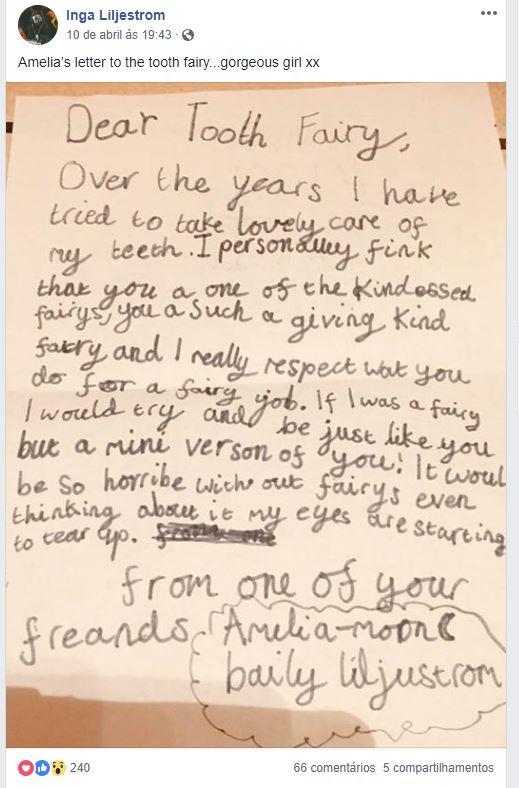 Inga Liljestrom
10 de abril às 19:43
Amelia's letter to the tooth fairy...gorgeous girl xx
Dear Tooth Fairy,
Over the years I have
tried to take lovely care of
my teeth. I personaly fink
that you a one of the Kindessed
fairys, you a such a giving Kind
fairy and I really respect wat you
do for a fairy job. If I was a fairy
I would try and be just like you
but a mini verson of you! It woul
be so horribe with out fairys even
thinking about it my eyes are starting
to tear up.
from one of your
freands Amelia-moon
baily liljustrom
240
66 comentários 5 compartilhamentos